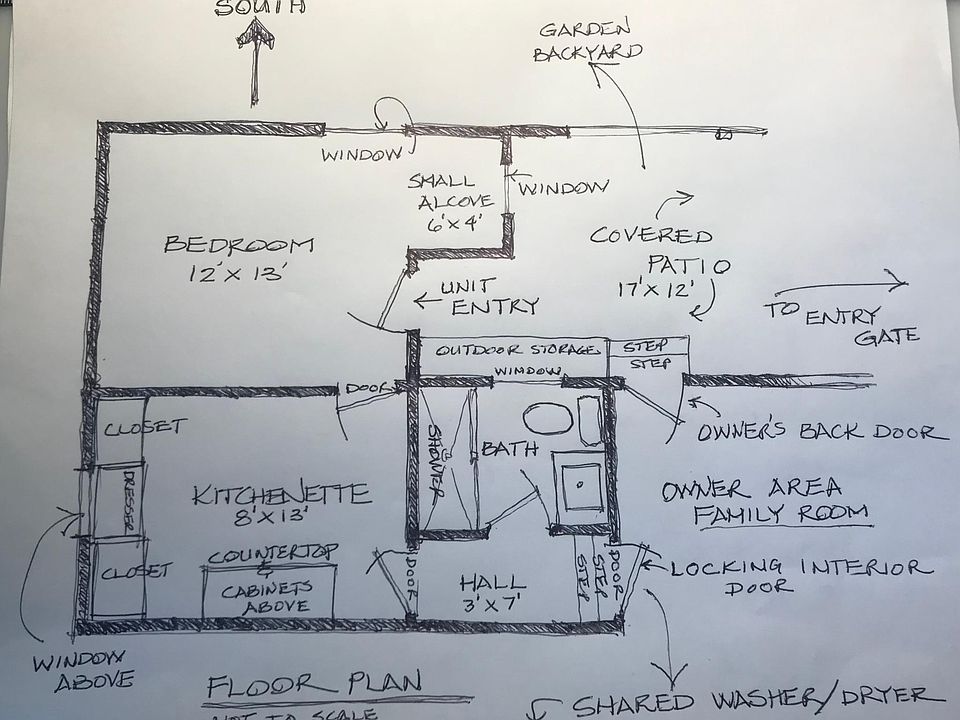 SOUTH
GARDEN
BACKYARD
WINDOW
SMALL
ALCOVE
6'X4'
WINDOW
BEDROOM
12'X13'
COVERED
PATIO
17'X12'
UNIT
ENTRY
TO ENTRY
GATE
OUTDOOR STORAGE
STEP
STEP
WINDOW
DOOR
CLOSET
SHOWER
BATH
OWNER'S BACK DOOR
DRESSER
KITCHENETTE
8'X13'
OWNER AREA
FAMILY ROOM
CLOSET
COUNTERTOP
&
CABINETS
ABOVE
DOOR
HALL
3'X7'
STEP
STEP
DOOR
LOCKING INTERIOR
DOOR
WINDOW
ABOVE
FLOOR PLAN
NOT TO SCALE
SHARED WASHER/DRYER